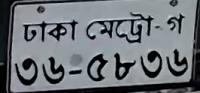 ঢাকা মেট্রো-গ
৩৬-৫৮৩৬